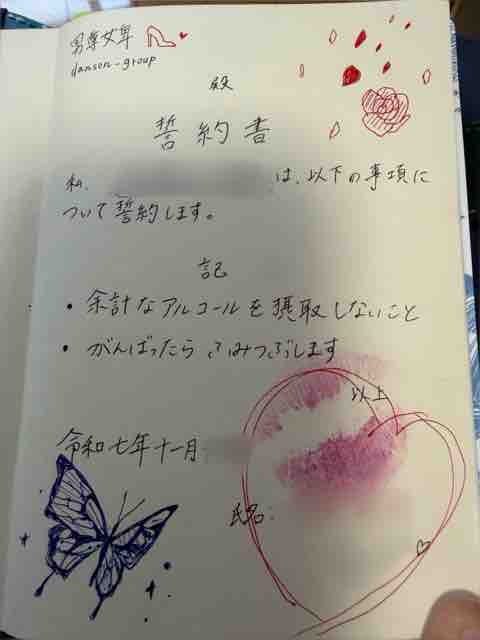 男尊女卑
danson-group
殿
誓約書
私、は、以下の事項に
ついて誓約します。
記
・余計なアルコールを摂取しないこと
・がんばったらふみつぶします
以上
令和七年十一月
氏名: